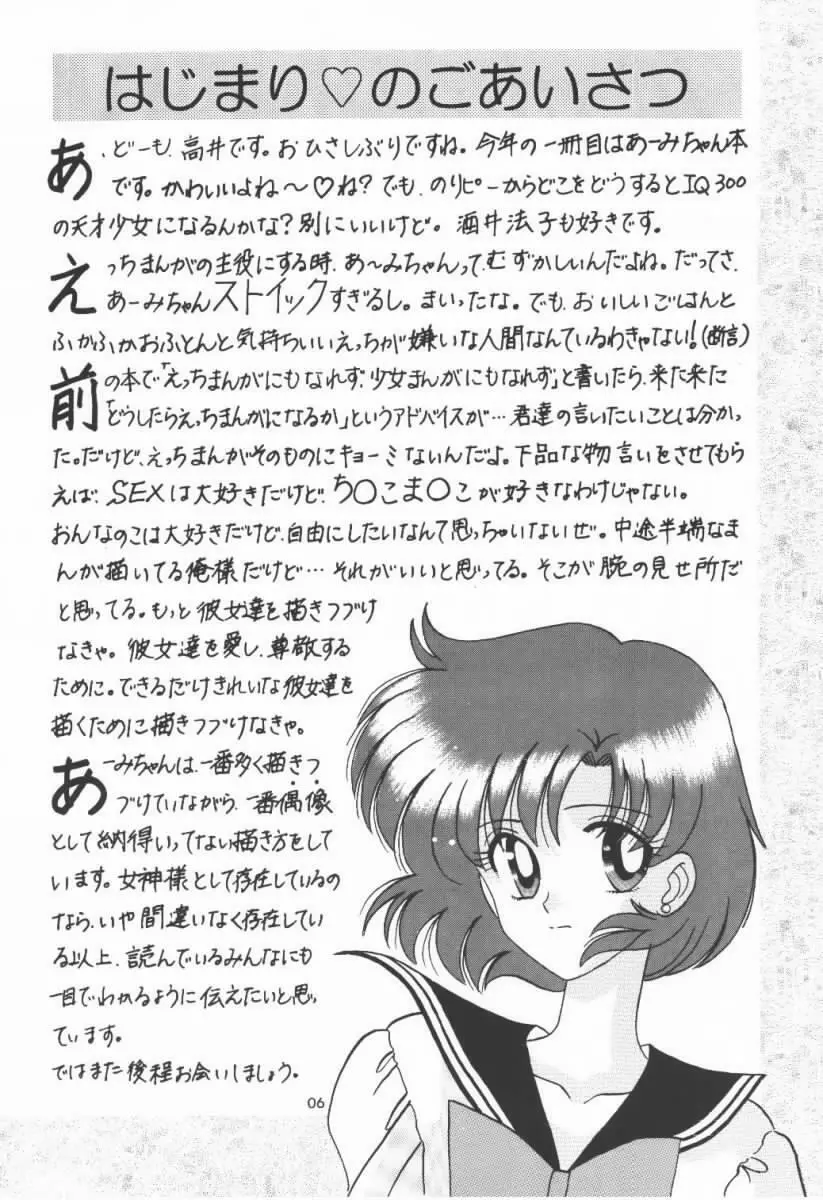 はじまり♡のごあいさつ
あ、どーも、高井です。おひさしぶりですね。今年の一冊目はあーみちゃん本
です。かわいいよね〜♡ね？でも、のりピーからどこをどうするとIQ300
の天才少女になるんかな？別にいいけど。酒井法子も好きです。
えっちまんがの主役にする時、あ〜みちゃんって、むずかしいんだよね。だってさ、
あーみちゃんストイックすぎるし。まいったな。でも、おいしいごはんと
ふかふかおふとんと気持ちいいえっちが嫌いな人間なんているわきゃない！(断言)
前の本で「えっちまんがにもなれず、少女まんがにもなれず」と書いたら、来た来た
「どうしたらえっちまんがになるか」というアドバイスが…君達の言いたいことは分かっ
た。だけど、えっちまんがそのものにキョーミないんだよ。下品な物言いをさせてもら
えば、SEXは大好きだけど、ち○こま○こが好きなわけじゃない。
おんなのこは大好きだけど、自由にしたいなんて思っちゃいないぜ。中途半端なま
んが描いてる俺様だけど…それがいいと思ってる。そこが腕の見せ所だ
と思ってる。もっと彼女達を描きつづけ
なきゃ。彼女達を愛し、尊敬する
ために。できるだけきれいな彼女達を
描くために描きつづけなきゃ。
あーみちゃんは、一番多く描きつ
づけていながら、一番偶像
として納得いってない描き方をして
います。女神様として存在しているの
なら、いや間違いなく存在してい
る以上、読んでいるみんなにも
一目でわかるように伝えたいと思っ
ています。
ではまた後程お会いしましょう。
06